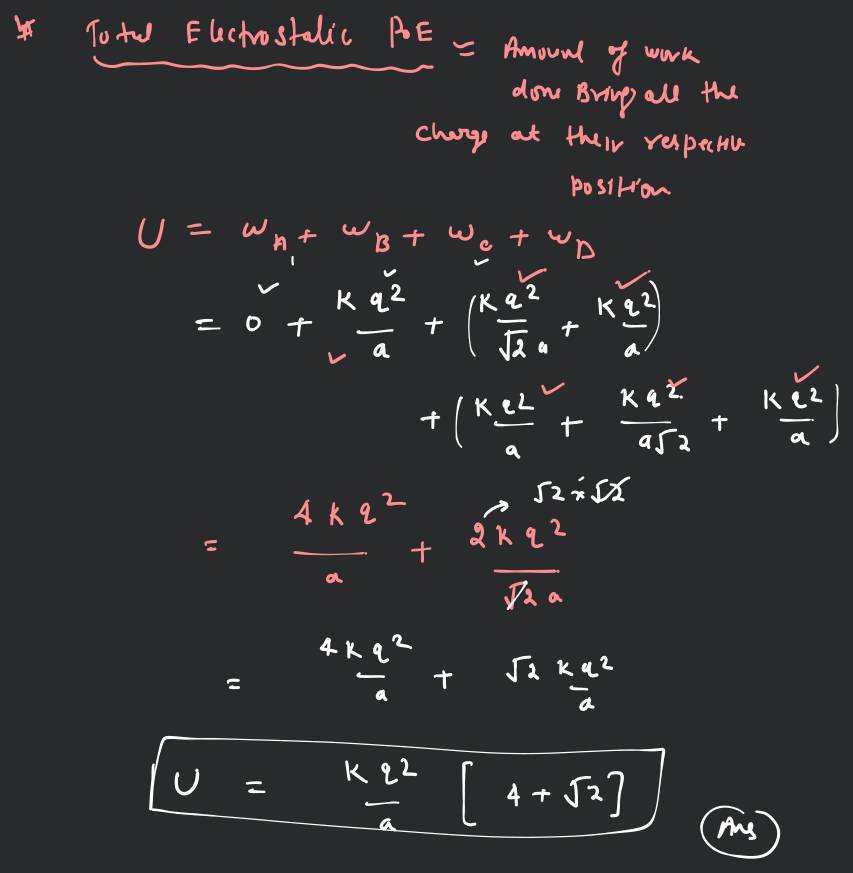 * Total Electrostatic PoE = Amount of work
done Bring all the
charge at their respective
position
U = W_A + W_B + W_C + W_D
= 0 + Kq²/a + (Kq²/√2 a + Kq²/a)
+ (Kq²/a + Kq²/a√2 + Kq²/a)
√2 × √2
= 4Kq²/a + 2Kq²/√2 a
= 4Kq²/a + √2 Kq²/a
U = Kq²/a [4 + √2]
Ans